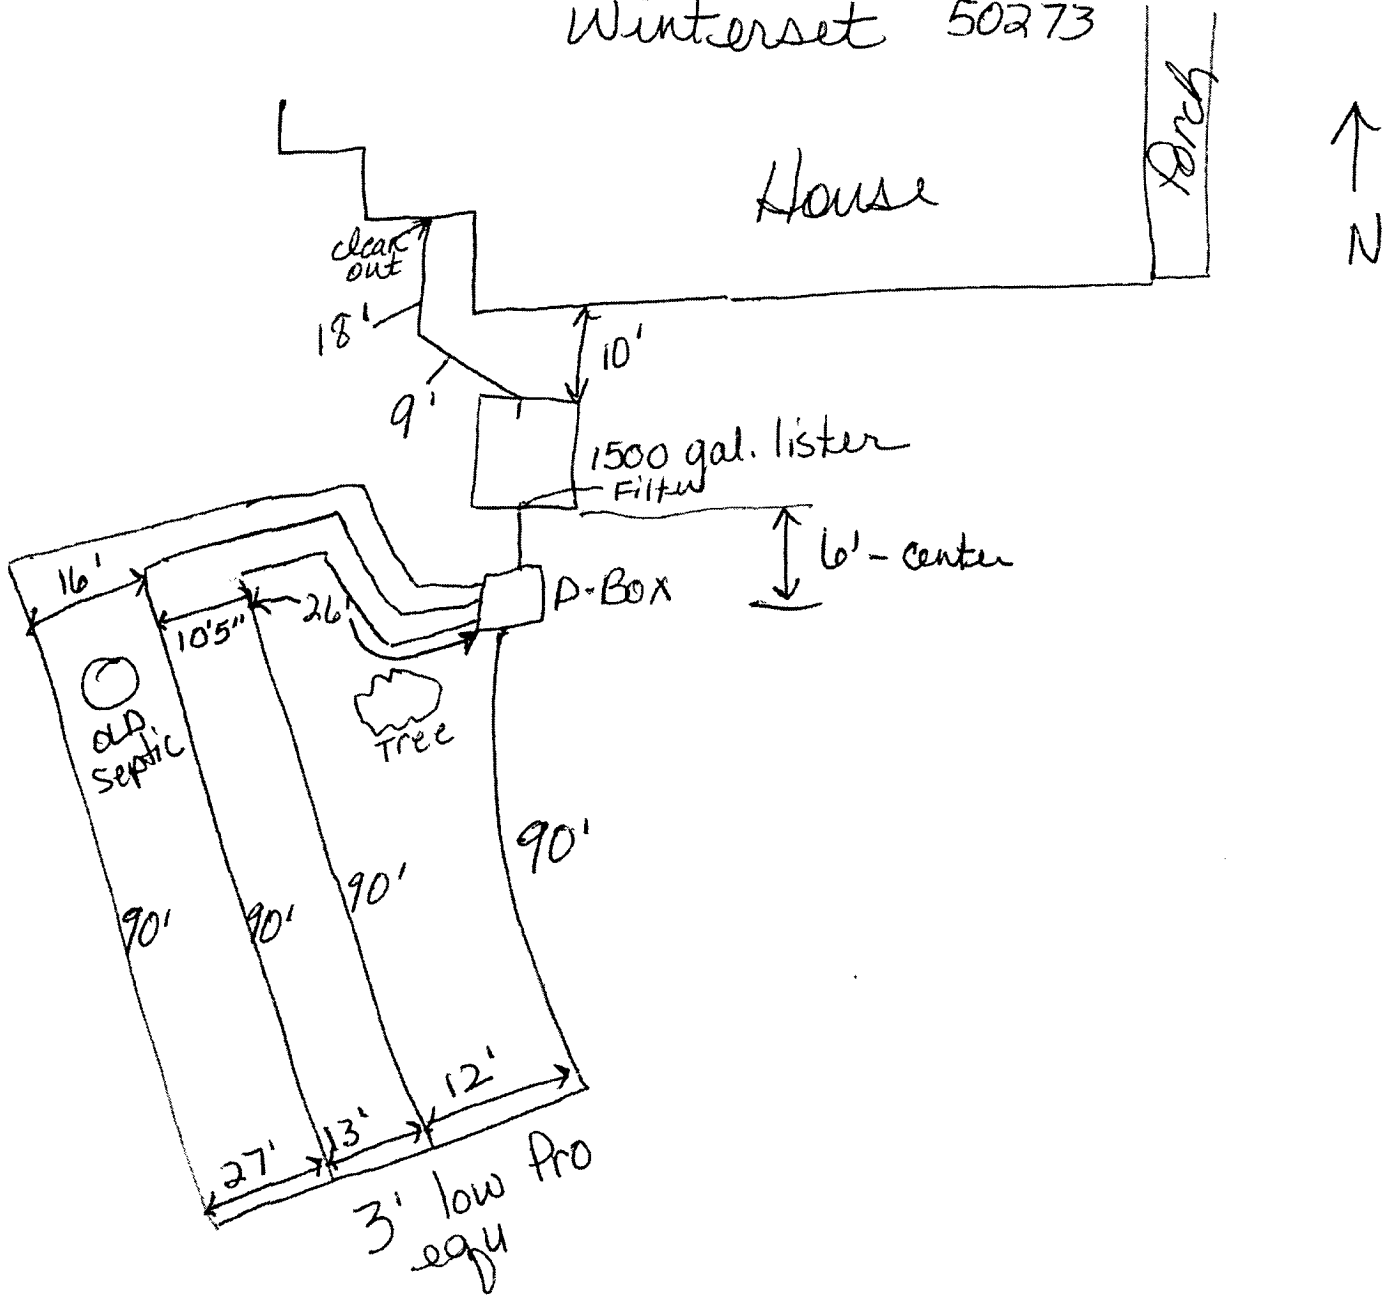 Winterset 50273
Porch
House
N
clean
out
18'
10'
9'
1500 gal. lister
Filter
6' - center
D-Box
16'
26'
10'5"
OLD
Septic
Tree
90'
90'
90'
90'
12'
13'
27'
3' low Pro
equ